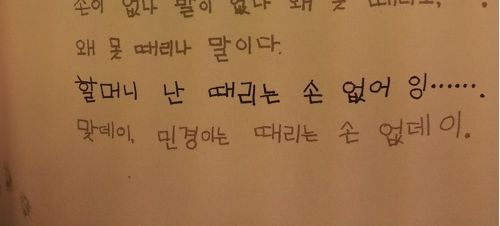 손이 없나 말이 없나 왜 못 때리노,
왜 못 때리나 말이다.
할머니 난 때리는 손 없어 잉…….
맞데이, 민경아는 때리는 손 없데이.